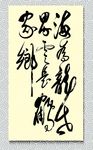 海為龍世
界雲是鶴
家鄉